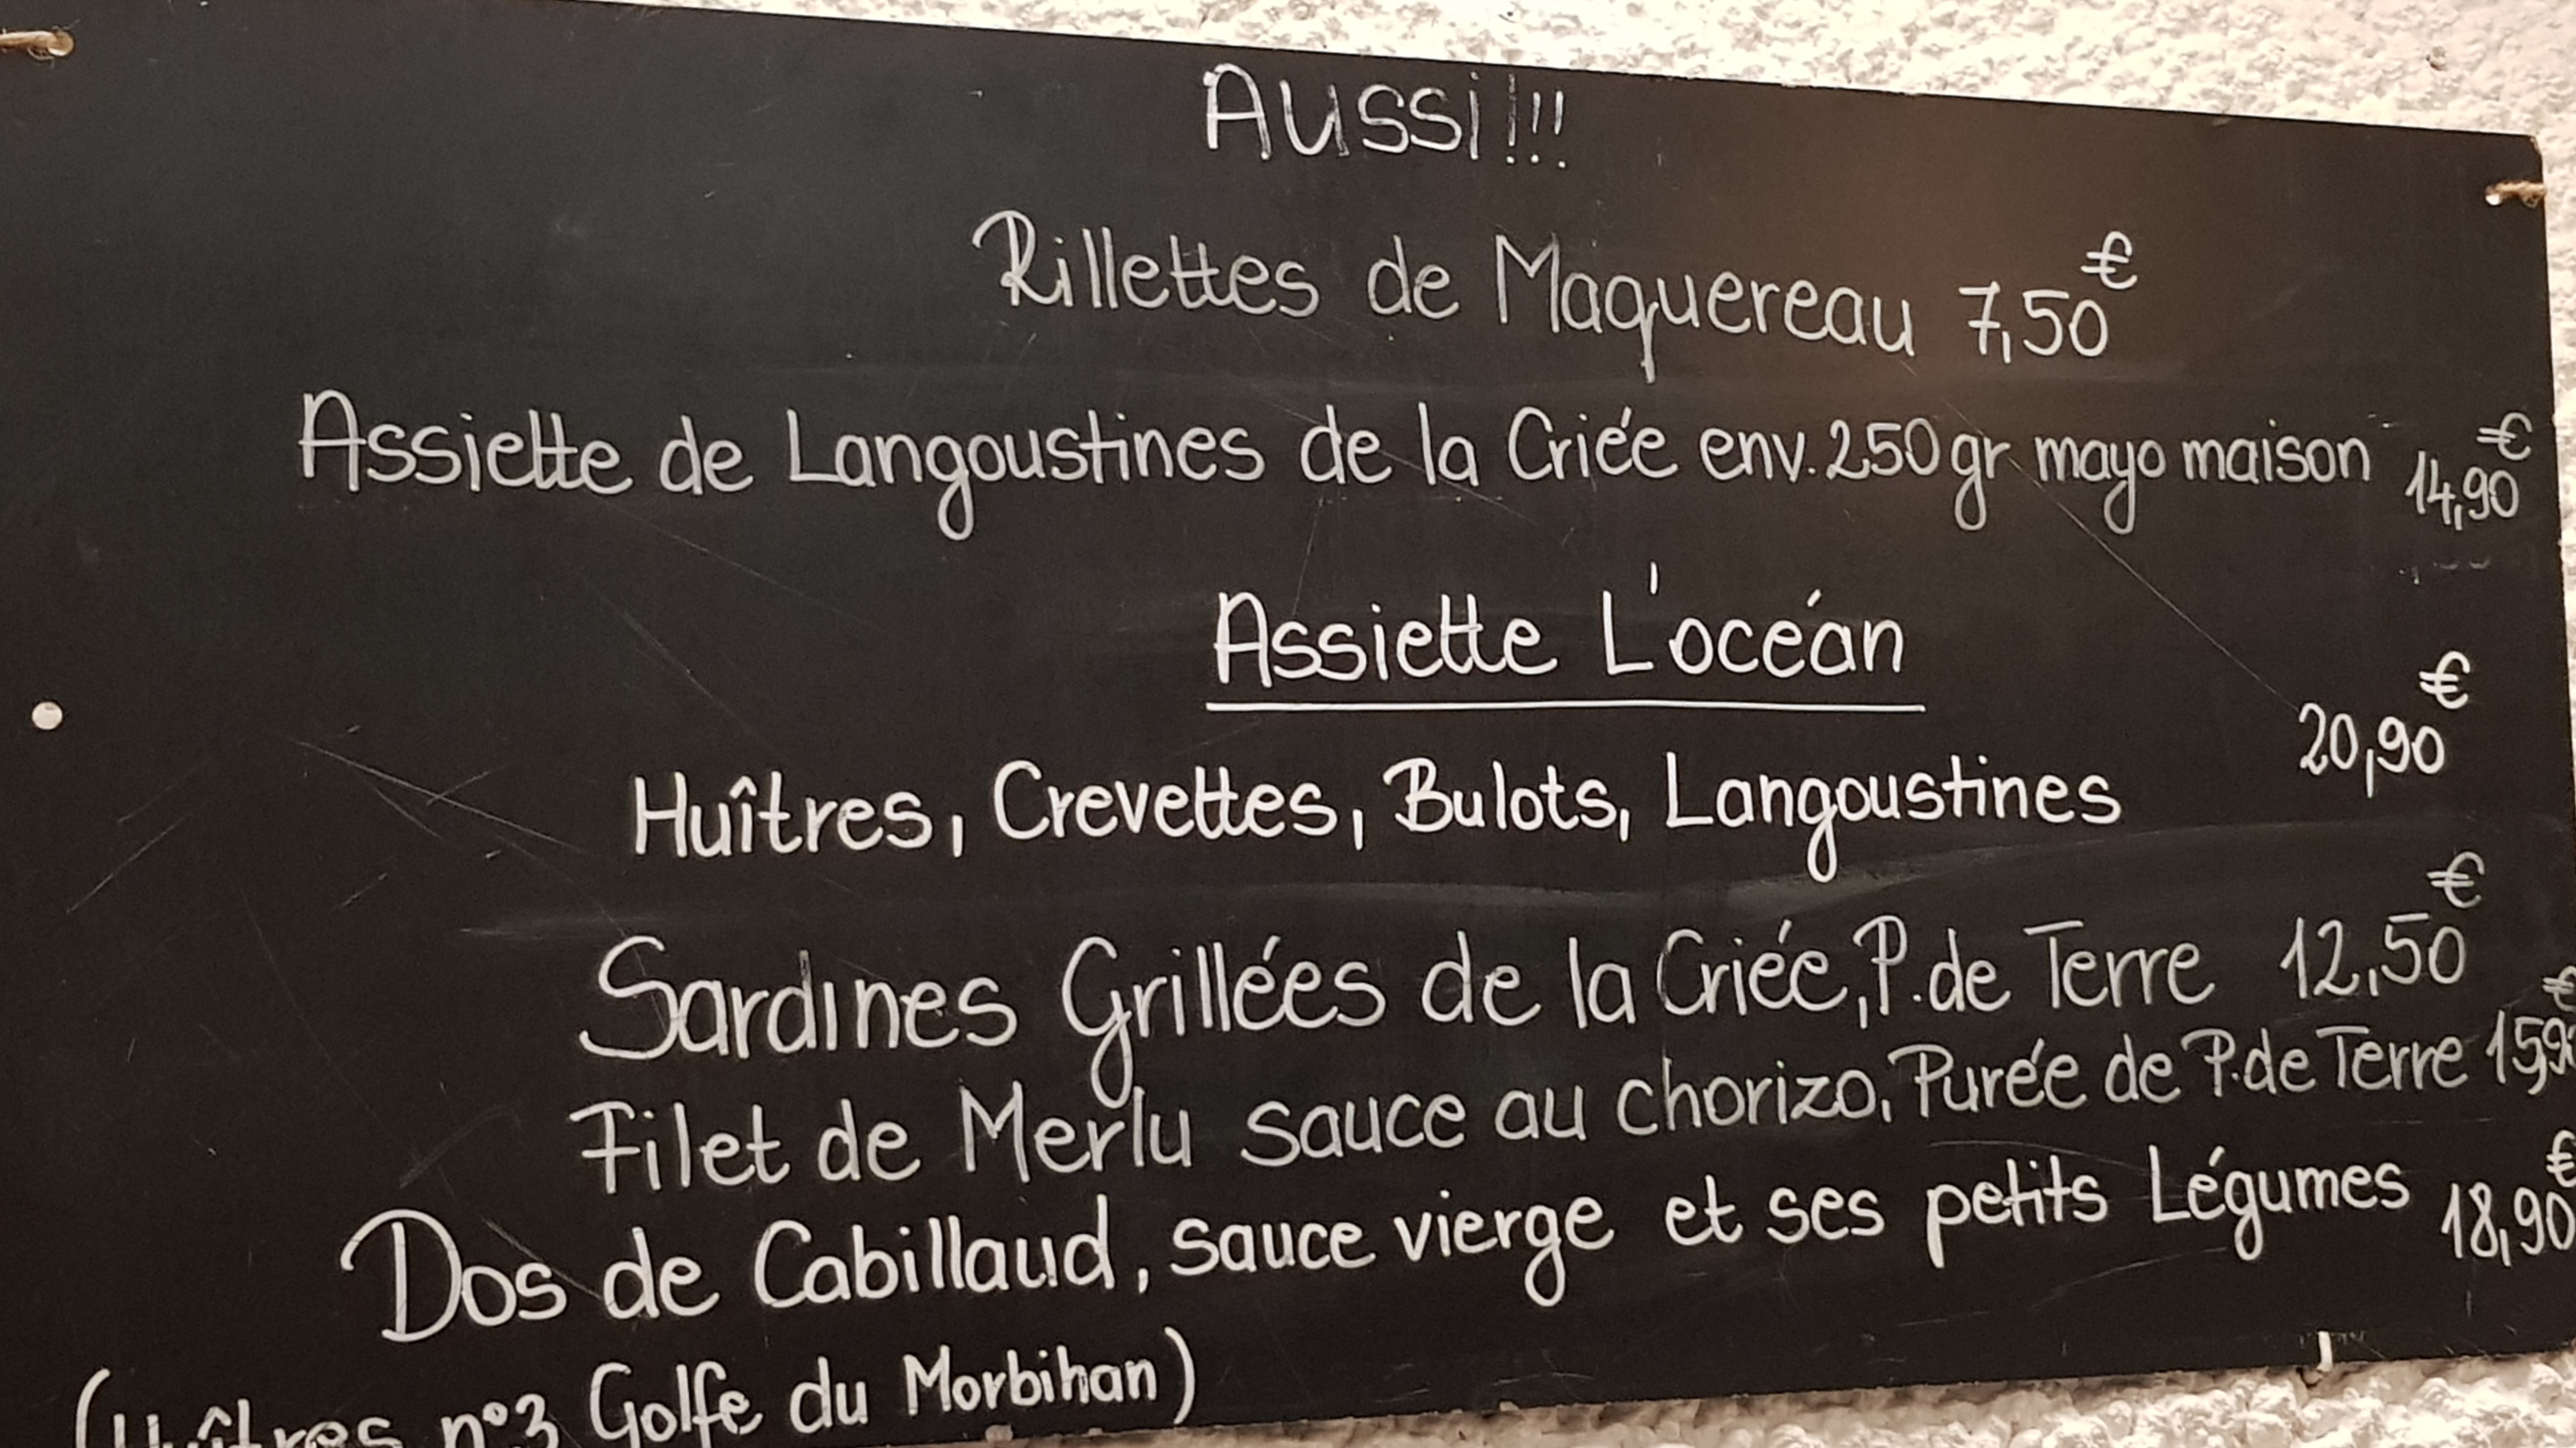 AUSSI!!!
Rillettes de Maquereau 7,50€
Assiette de Langoustines de la Criée env. 250gr mayo maison 14,90€
Assiette L'océan
20,90€
Huîtres, Crevettes, Bulots, Langoustines
Sardines Grillées de la Criée, P. de Terre 12,50€
Filet de Merlu sauce au chorizo, Purée de P. de Terre
Dos de Cabillaud, sauce vierge et ses petits Légumes 18,90€
(Huîtres n°3 Golfe du Morbihan)